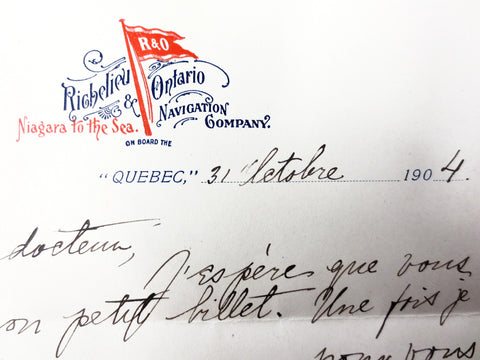 R&O
Richelieu & Ontario
Navigation
Niagara to the Sea. Company.
ON BOARD THE
"QUEBEC," 31 Octobre 1904.
docteur,
J'espère que vous
on petit billet. Une fois je
pour vous